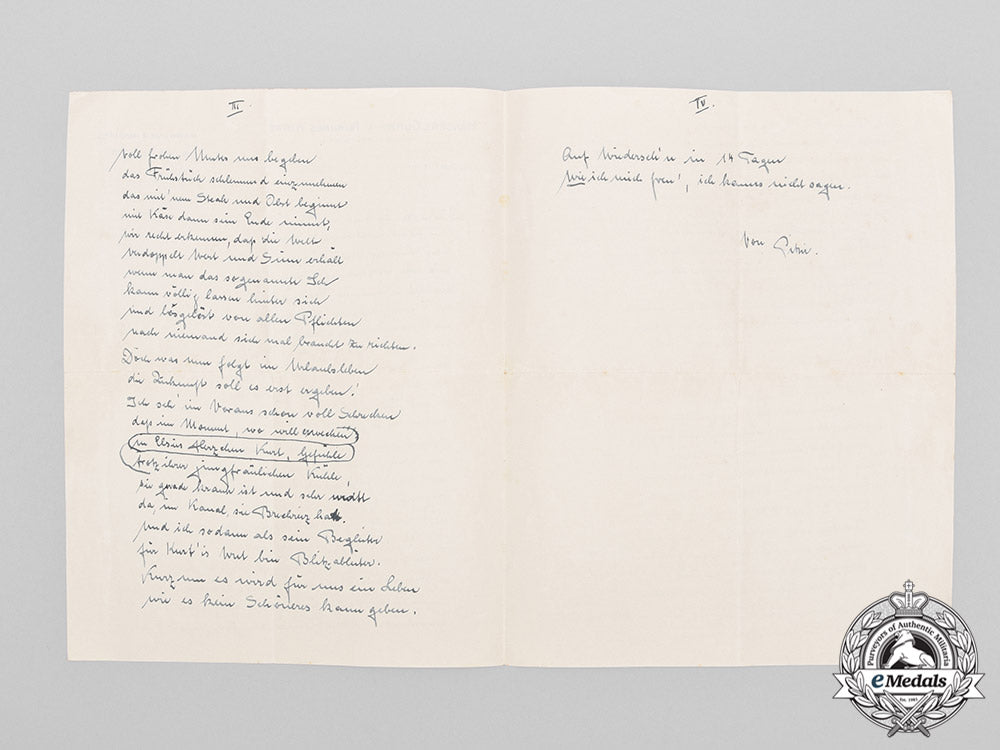 III.
voll frohen Mutes uns begeben
das Frühstück schlemmend einzunehmen
das mit 'nem Steak und Obst beginnt
mit Käse dann sein Ende nimmt,
wir recht erkennen, daß die Welt
verdoppelt Wert und Sinn erhält
wenn man das sogenannte Ich
kann völlig lassen hinter sich
und losgelöst von allen Pflichten
nach niemand sich mal braucht zu richten.
Doch was nun folgt im Urlaubsleben
die Zukunft soll es erst ergeben!
Ich seh' im Voraus schon voll Schrecken
daß im Moment, wo will erwecken
in Elsies Herzchen Kurt, Gefühle
trotz ihrer jungfräulichen Kühle,
sie gerade krank ist und sehr matt
da, im Kanal, sie Brechreiz hat.
und ich sodann als sein Begleiter
für Kurt's Wut bin Blitzableiter.
Kurzum es wird für uns ein Leben
wie es kein Schöneres kann geben.
IV.
Auf Wiederseh'n in 14 Tagen
Wie ich mich freu', ich kanns nicht sagen.
Von
Purveyors of Authentic Militaria
eMedals
Est. 1997